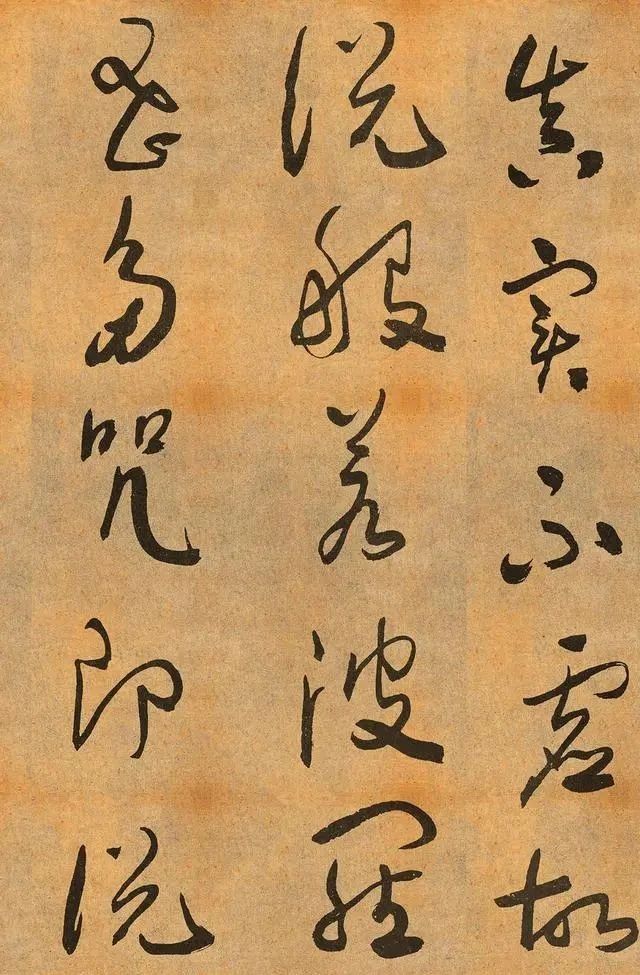 真實不虛故
說般若波羅
蜜多咒即說